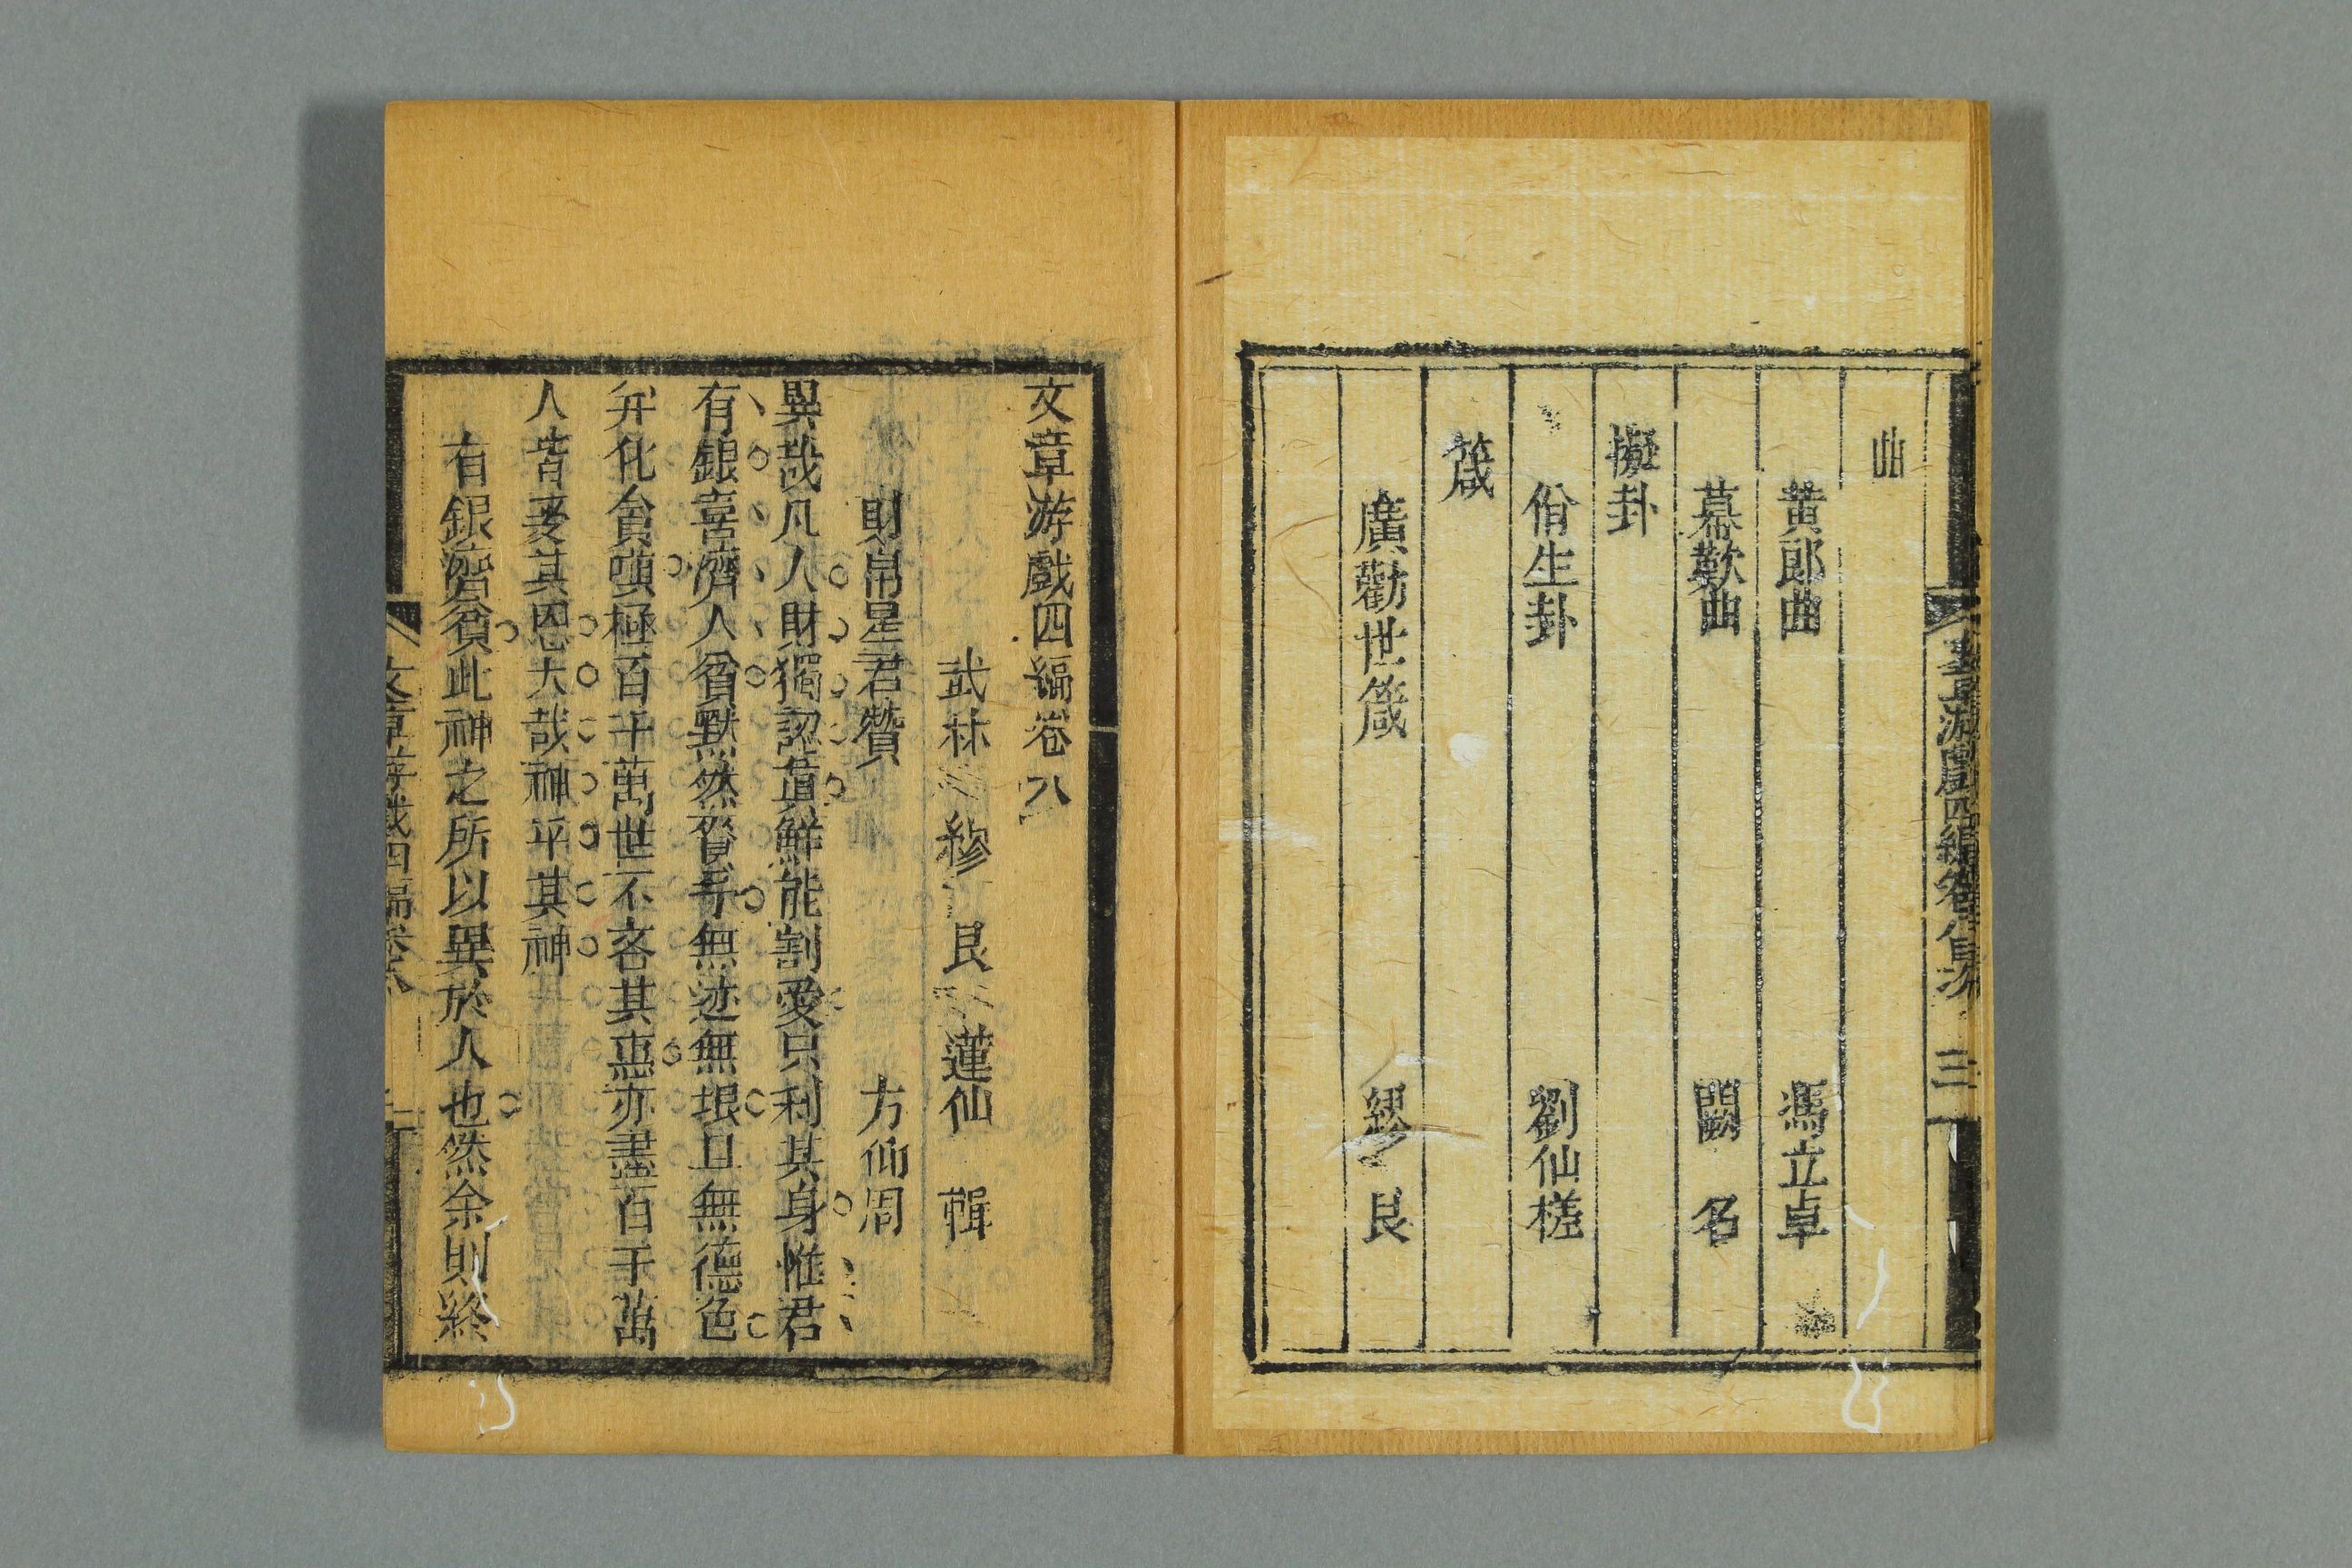 曲
黃郎曲　馮立卓
幕歎曲　闕名
擬卦
佾生卦　劉仙槎
箴
廣勸世箴　繆艮
文章游戲四編卷八目次　三
文章游戲四編卷八
武林　繆　艮　蓮仙　輯
財帛星君贊　方仰周
異哉凡人財獨認眞鮮能割愛只利其身惟君
有銀喜濟人貧默然賫手無迹無垠且無德色
弁化貪嗔極百千萬世不吝其惠亦盡百千萬
人皆受其恩大哉神乎其神
有銀濟貧此神之所以異於人也然余則終
文章游戲四編卷八